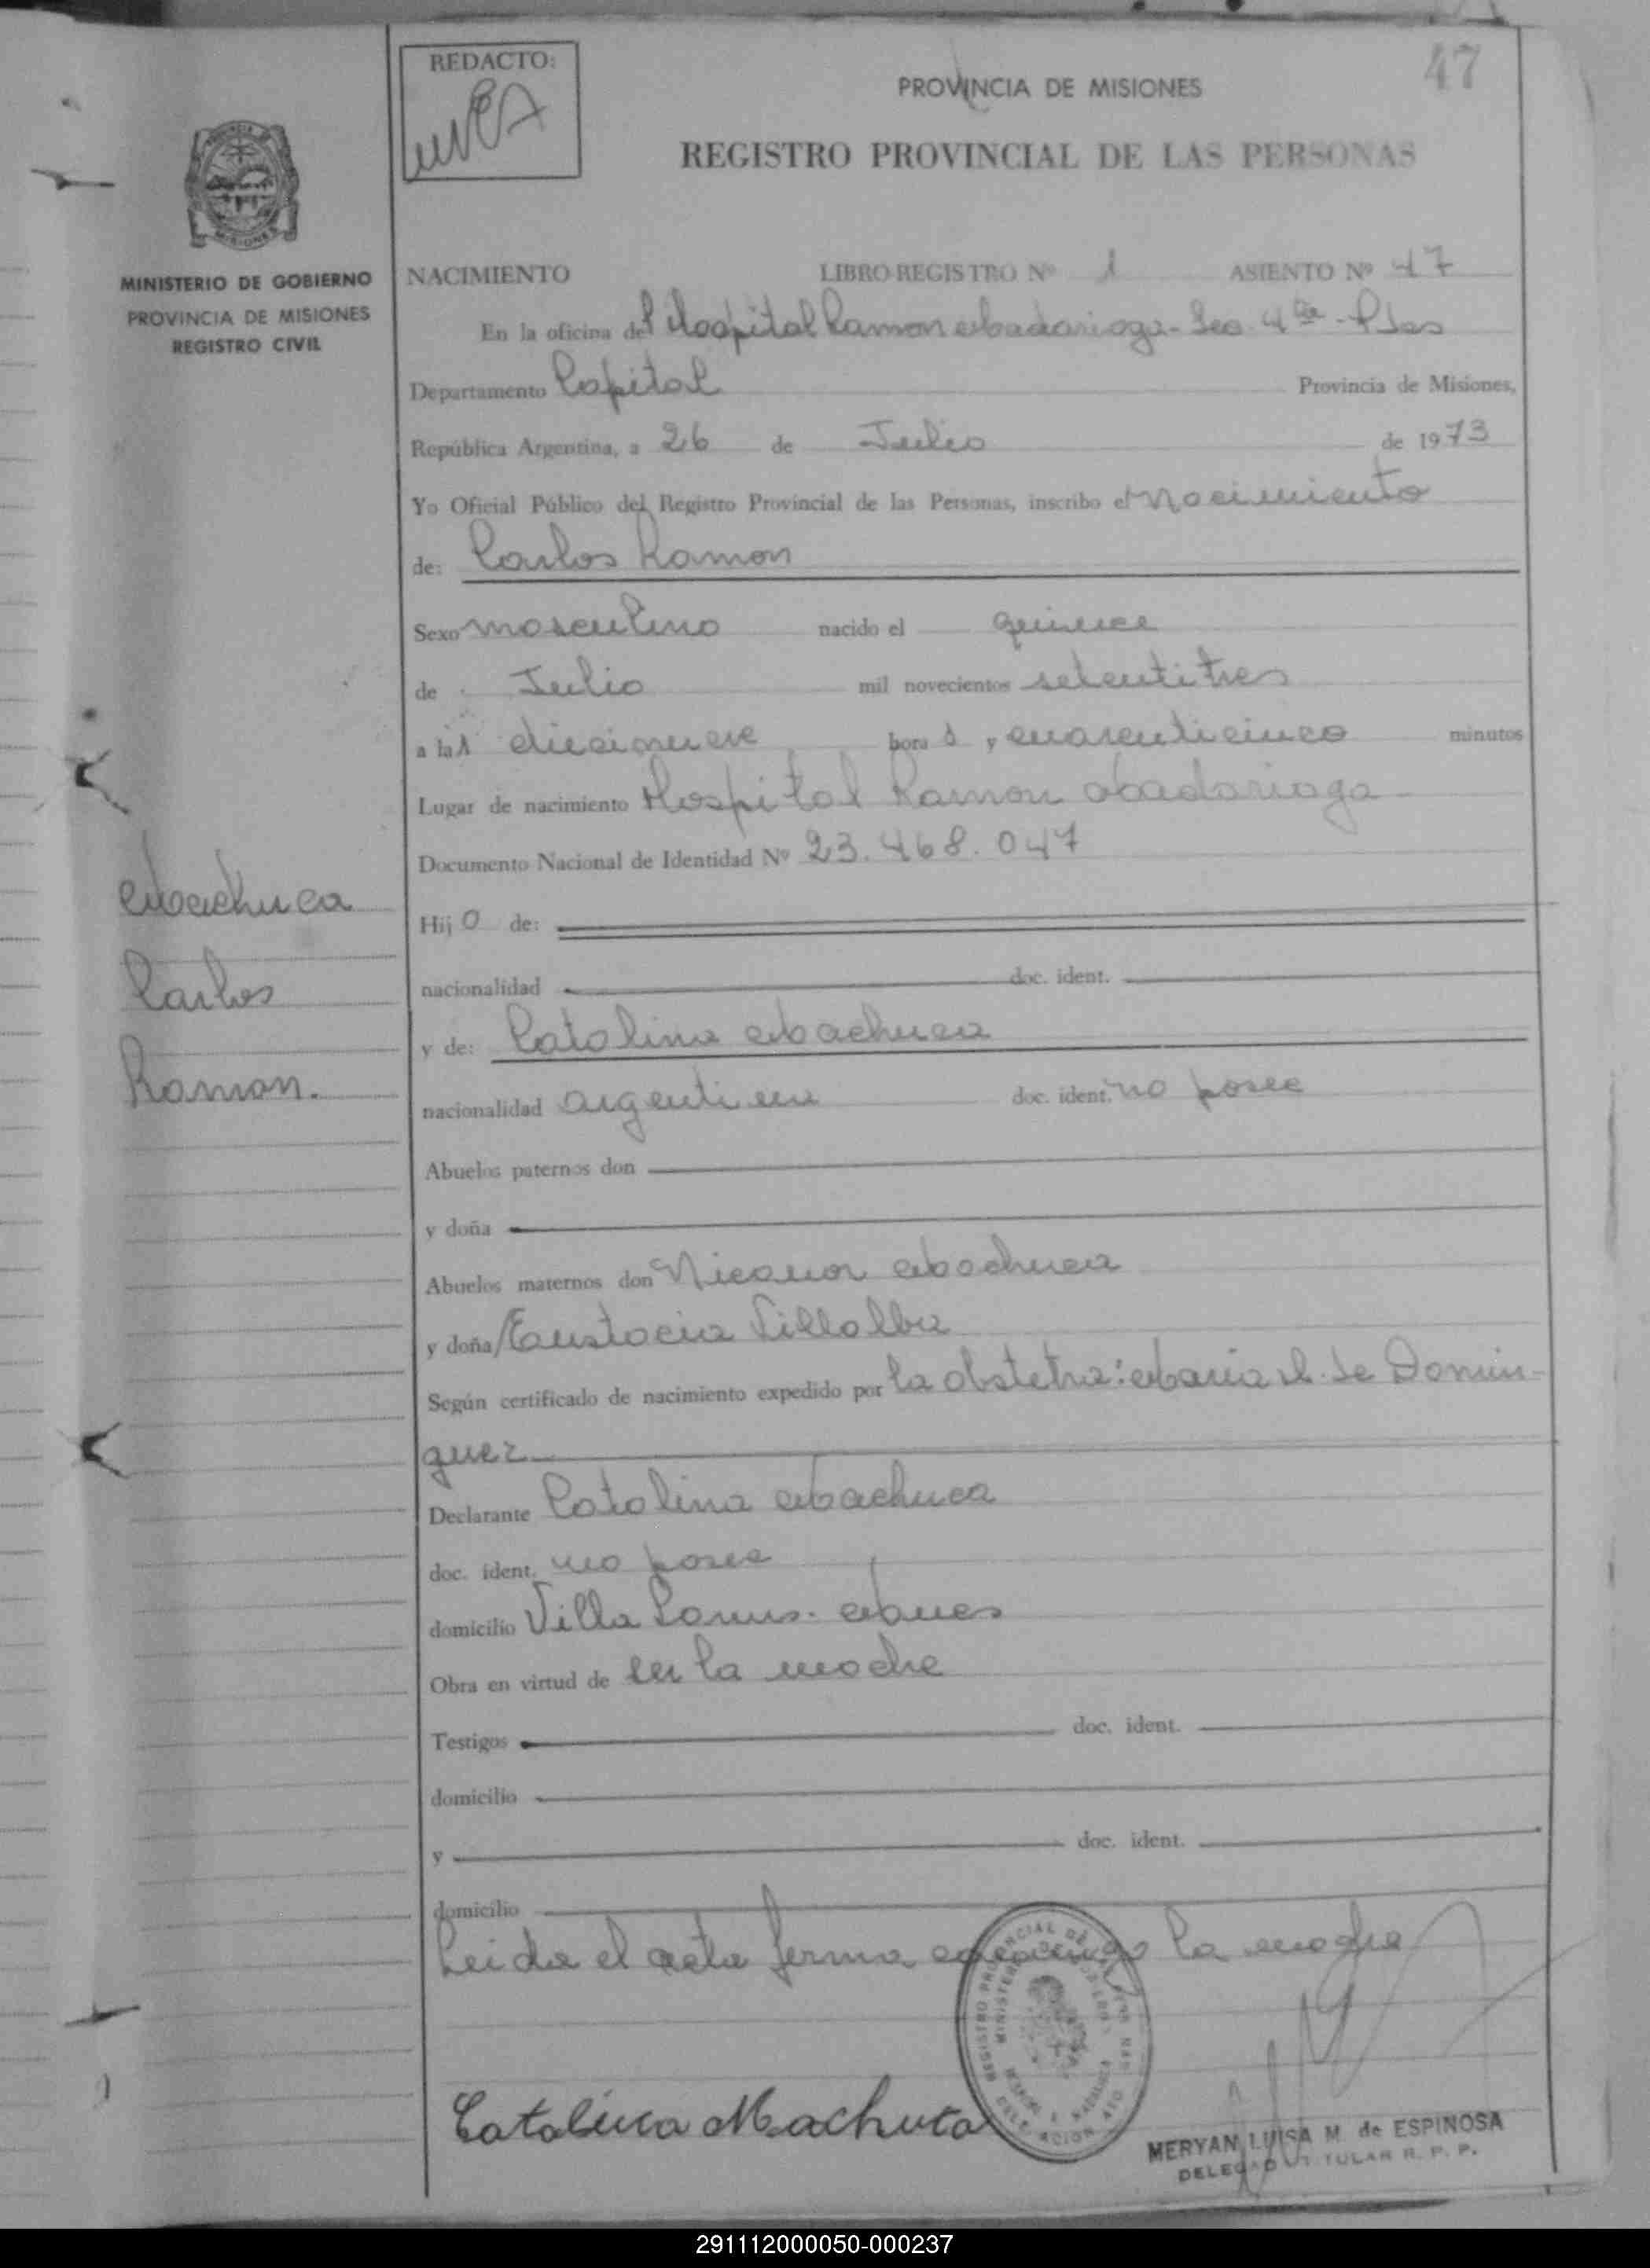 47
REDACTO:
PROVINCIA DE MISIONES
REGISTRO PROVINCIAL DE LAS PERSONAS
MISIONES
MINISTERIO DE GOBIERNO
PROVINCIA DE MISIONES
REGISTRO CIVIL
NACIMIENTO LIBRO-REGISTRO Nº 1 ASIENTO Nº 47
En la oficina del Hospital Ramon Madariaga - Sec. 4ta - Pdas
Departamento Capital Provincia de Misiones,
República Argentina, a 26 de Julio de 1973
Yo Oficial Público del Registro Provincial de las Personas, inscribo el Nacimiento
de: Carlos Ramon
Sexo masculino nacido el quince
de Julio mil novecientos setentitres
a las diecinueve hora s y cuarenticinco minutos
Lugar de nacimiento Hospital Ramon Madariaga
Documento Nacional de Identidad Nº 23.468.047
Machuca
Carlos
Ramon.
Hij o de:
nacionalidad doc. ident.
y de: Catalina Machuca
nacionalidad argentina doc. ident. no posee
Abuelos paternos don
y doña
Abuelos maternos don Nicanor Machuca
y doña Eustacia Villalba
Según certificado de nacimiento expedido por la obstetra: Maria de Domin-
guez
Declarante Catalina Machuca
doc. ident. no posee
domicilio Villa Lanus. Mnes
Obra en virtud de ser la madre
Testigos doc. ident.
domicilio
y doc. ident.
domicilio
Leida el acta firma conmigo la madre
Catalina Machuca
MERYAN LUISA M. de ESPINOSA
DELEGADO TITULAR R. P. P.
291112000050-000237